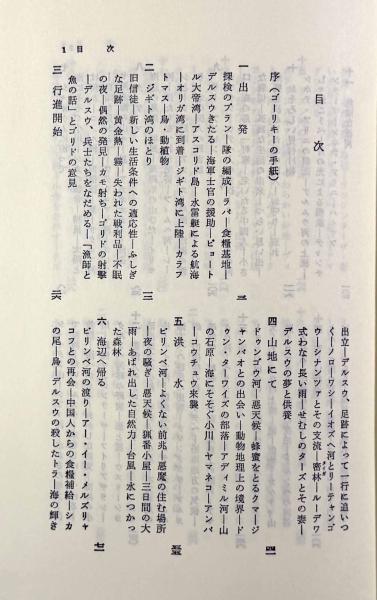 1 目 次
目 次
序(ゴーリキーの手紙)
一 出 発 三
探検のプラン―隊の編成―ラバ―食糧基地―
デルスウきたる―海軍士官の援助―ピョート
ル大帝湾―アスコリド島―水雷艇による航海
―オリガ湾に到着―ジギト湾に上陸―カラフ
トマス―鳥・動植物
二 ジギト湾のほとり 三
旧信徒―新しい生活条件への適応性―ふしぎ
な足跡―黄金熱―霧―失われた戦利品―不眠
の夜―偶然の発見―カモ射ち―ゴリドの射撃
―デルスウ、兵士たちをなだめる―「漁師と
魚の話」とゴリドの意見
三 行進開始 六
出立―デルスウ、足跡によって一行に追いつ
く―ノロ―ワシ―イオズヘ河とリーチャンゴ
ウ―シナンツァとその支流―密林―ルーデワ
式わな―長い雨―せむしのターズとその妻―
デルスウの夢と供養
四 山地にて 四
ドゥンゴウ河―悪天候―蜂蜜をとるクマ―ジ
ャンバオとの出会い―動物地理上の境界―ド
ゥン・ターワイズの部落―アディミル河―山
の石原―海にそそぐ小川―ヤマネコ―アンバ
―コウチュウ来襲
五 洪 水
ビリンベ河―よくない前兆―悪魔の住む場所
―夜の騒ぎ―悪天候―猟番小屋―三日間の大
雨―あばれ出した自然力―台風―水につかっ
た森林
六 海辺へ帰る
ビリンベ河の渡り―アー・イー・メルズリャ
コフとの再会―中国人からの食糧補給―シカ
の尾―鳥―デルスウの殺したトラ―海の輝き